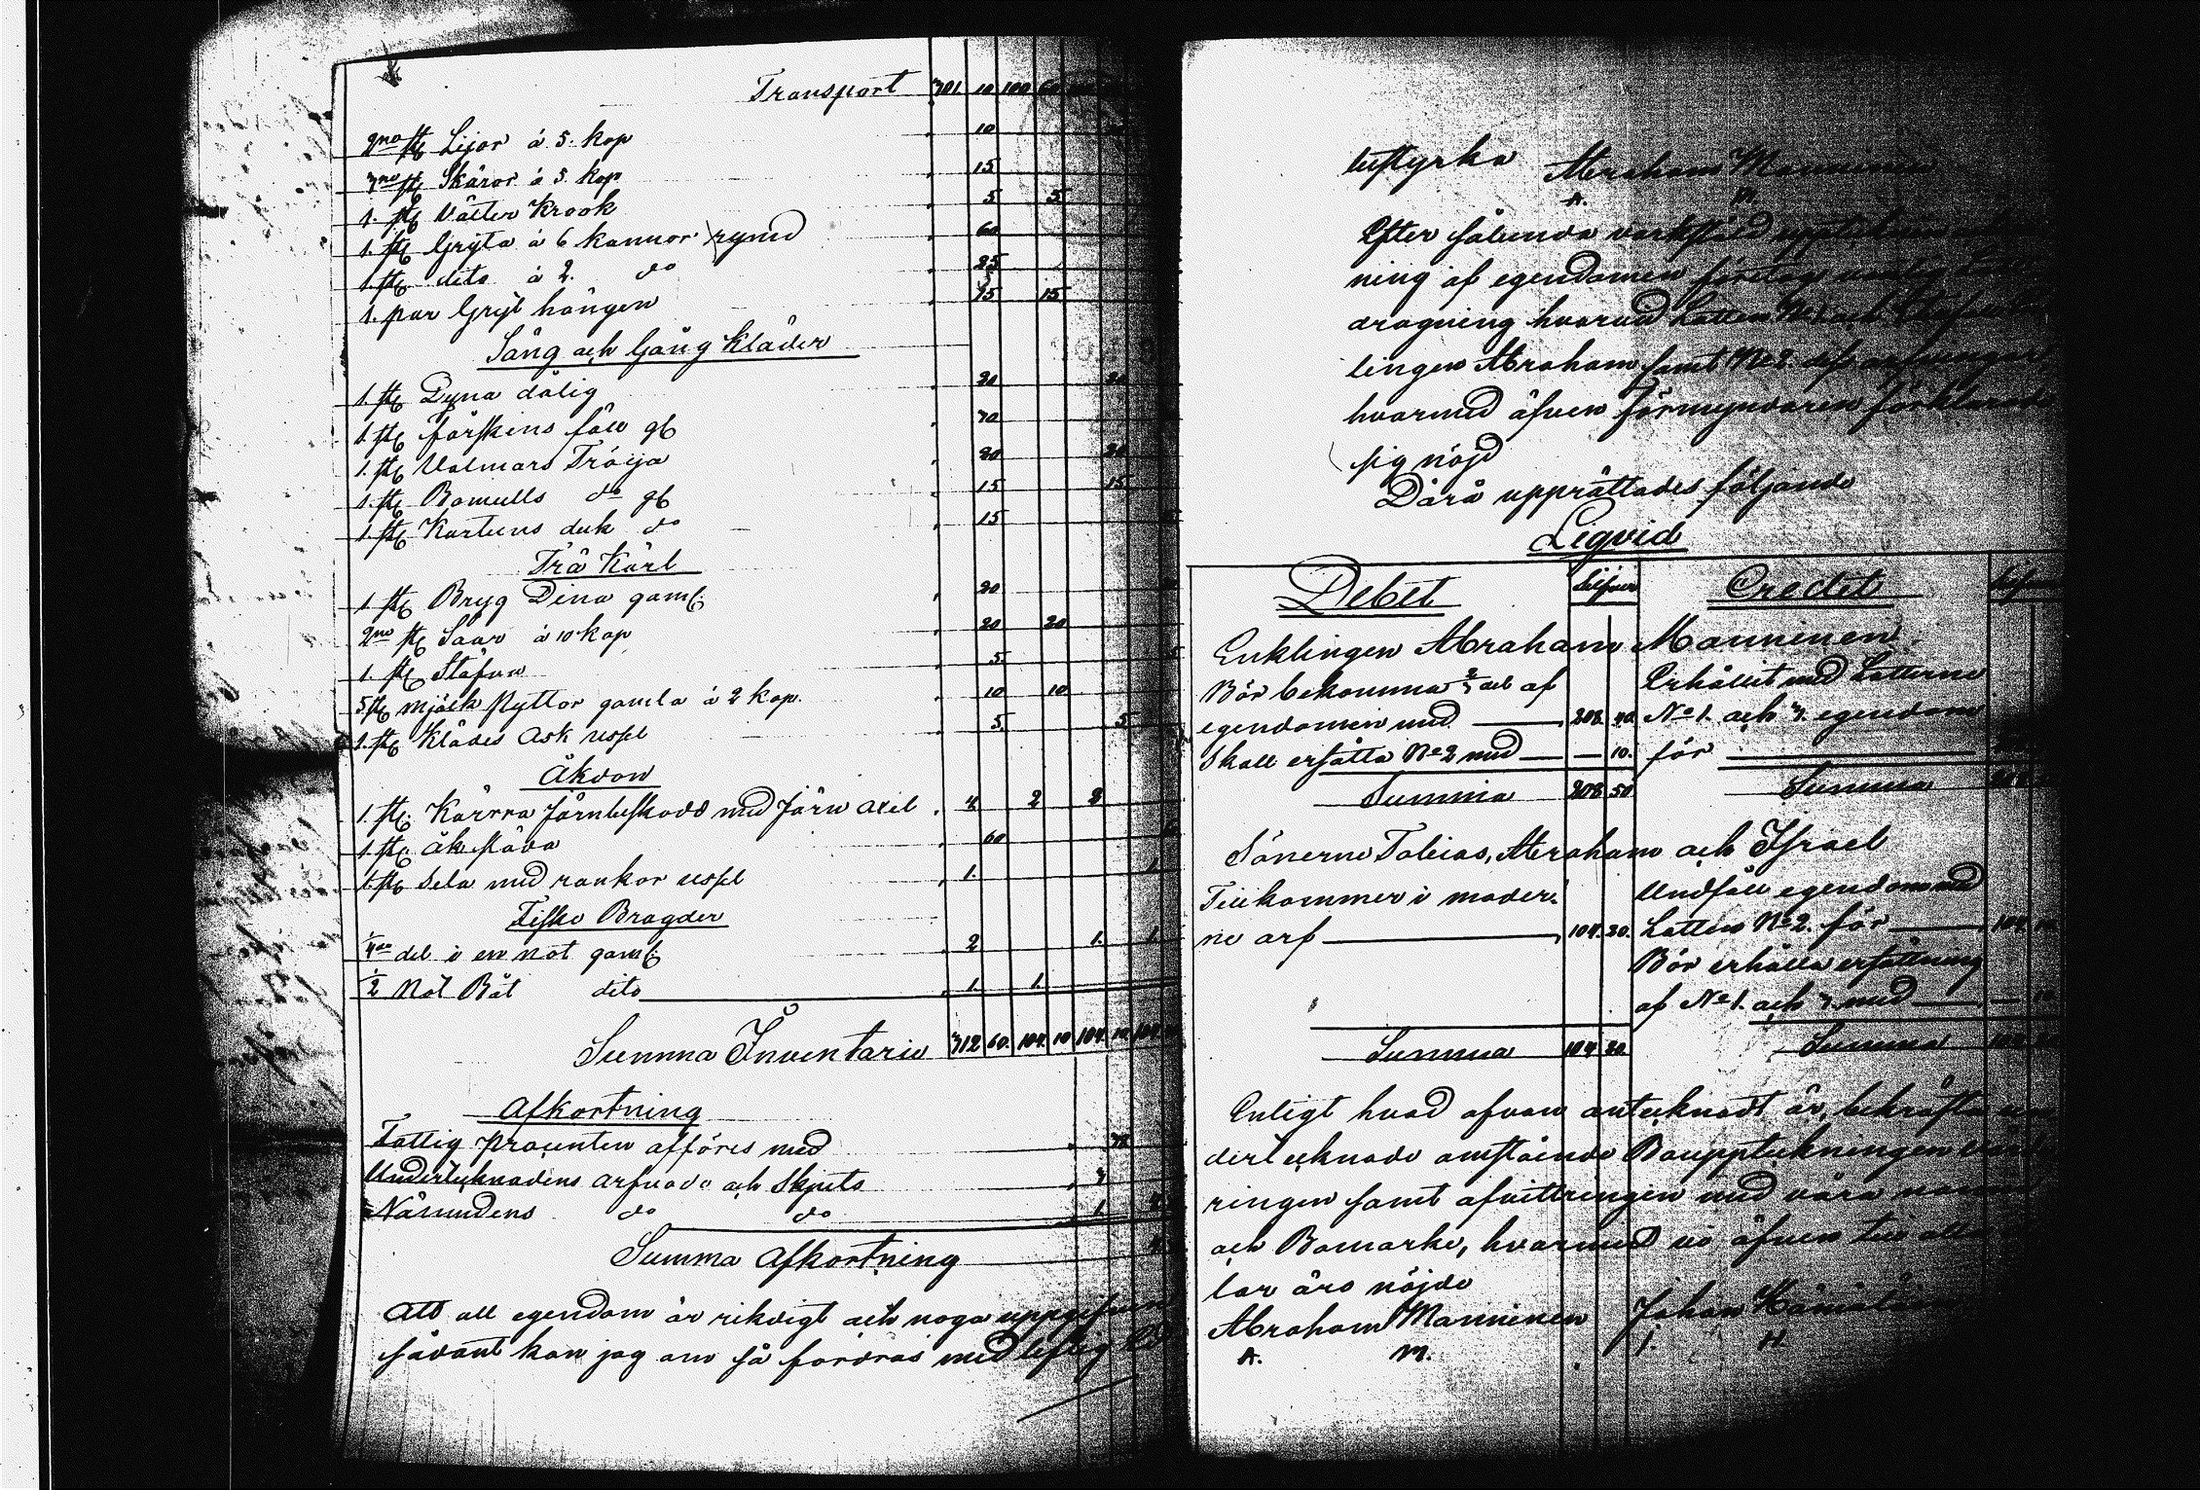 Transport 301. 10 100 60
2ne st Lijor á 5. kop 10
3ne st Skäror á 5 kop 15
1. st Vatten Krook 5 5
1. st Gryta á 6 kannor rymd 60
1 st dito á 2. do 25
1. par Gryt hängen 15 15
Säng och Gång Kläder
1. st Dyna dålig 20 20
1. st fårskins fäll gl 70
1. st Valmars Tröija 20 20
1. st Bomulls do gl 15 15
1 st Kartuns duk do 15
Trä Kärl
1. st Bryg Tina gaml. 20
2ne st Saar á 10 kop 20 20
1. st Stäfva 5
5. st mjölk Byttor gamla á 2 kop. 10 10
1. st Klädes Ask ussel 5 5
Åkdon
1. st. Kärra Järnbeskodd med Järn axel 4 2 2
1. st. åk släda 60
1. st Sela med rankor ussel 1. 1.
Fiske Bragder
1/4 del i en not gaml. 2 1. 1.
1/2 Not Båt dito 1. 1.
Summa Inventarie 312 60. 104. 10 104. 10
Afkortning
Fattig procenten afföres med
Undertecknadens arfvode och Skjuts
Nämndens do do 1
Summa Afkortning
Att all egendom är rikdigt och noga
sådant kan jag om så fordras med
bestyrka Abraham Manninen
A. M.
Efter sålunda verkstäld
ning af egendomen företogs
dragning hvarvid Lotten No 1 och 3
lingen Abraham samt No 2.
hvarmed äfven förmyndaren förklarade
sig nöjd
Därå upprättades följande
Liqvid
Debet Silfver Credit
Enklingen Abraham Manninen
Bör bekomma 2/3 del af Erhållit med Lotterne
egendomen med 208. 40. No 1. och 3. egendom
Skall ersätta No 2 med — 10. för
Summa 208 50 Summa
Sönerne Tobias, Abraham och Israel
Tillkommer i moder: Undfått egendom med
ne arf 104. 20. Lotten No 2. för 104. 10
Bör erhålla ersättning
af No 1. och 3. med — 10
Summa 104 20 Summa
Enligt hvad ofvan antecknadt är, bekräfta un
dertecknade omstående Bouppteckningen
ringen samt afvittringen med våra
och Bomärke, hvarmed vi äfven till alla
lar äro nöjde
Abraham Manninen Johan
A. M. J. H.